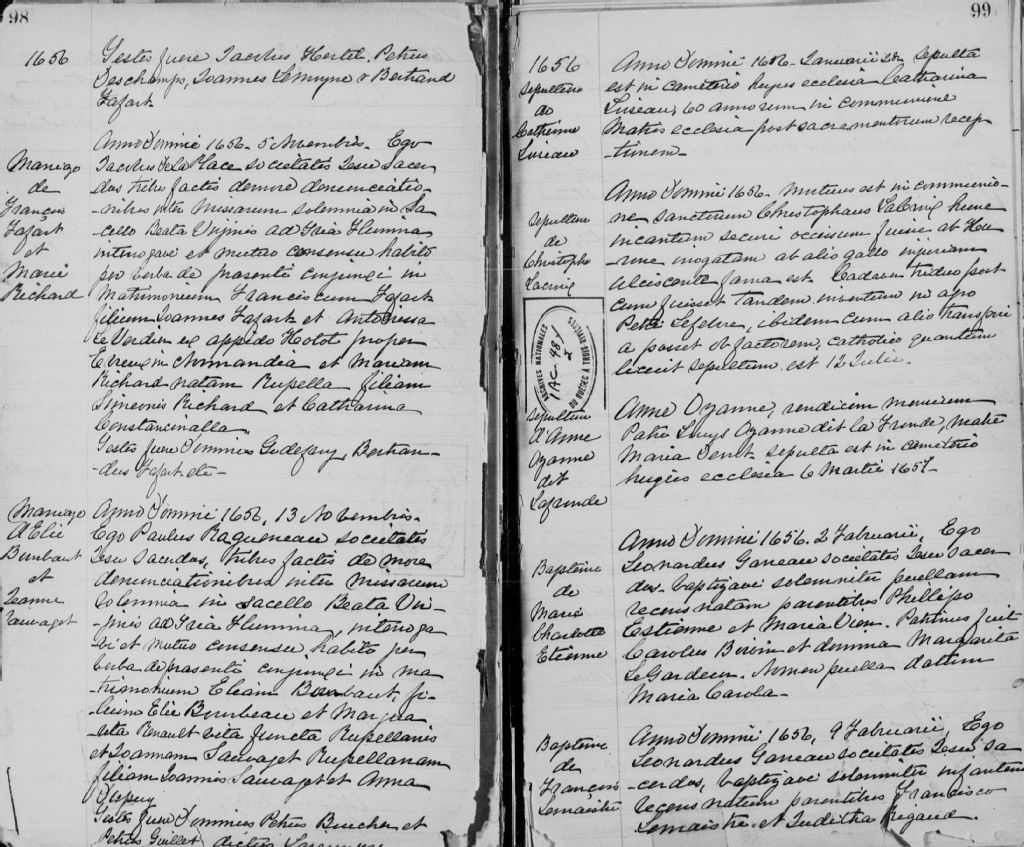 98
1656
Testes fuere Jacobus Hertel, Petrus
Deschamps, Joannes Lemoyne & Bertrand
Fafart
Mariage
de
François
Fafart
et
Marie
Richard
Anno Domini 1656. 5 Novembris. Ego
Jacobus De la Place societatis Jesu Sacer
dos tribus factis de more denunciatio-
-nibus inter missarum solemnia in Sa-
cello Beata Virginis ad Tria Flumina
interrogavi et mutuo consensu habito
per verba de presenti conjunxi in
Matrimonium Franciscum Fafart
filium Joannes Fafart et Antonessa
Le Verdier ex oppido Hotot prope
Evreux in Normandia et Mariam
Richard natam Rupella filiam
Simeonis Richard et Catharina
Constancinalla
Testes fuere Dominis Godefroy, Bertran-
-dus Fafart etc-
Mariage
d'Elie
Bourbaut
et
Jeanne
Sauvaget
Anno Domini 1656, 13 Novembris-
Ego Paulus Ragueneau societatis
Jesu Sacerdos, tribus factis de more
denunciationibus inter missarum
solemnia in sacello Beata Vir-
-ginis ad Tria Flumina, interroga
vi et mutuo consensu, habito per
verba de presenti conjunxi in ma
-trimonium Eliam Bourbaut, fi-
lium Elie Bourbeau et Margua
-rita Renault vita functa Rupellanis
et Joannam Sauvaget Rupellanam
filiam Joannis Sauvaget et Anna
Dupuy
Testes fuere Dominus Petrus Boucher et
Petrus Guillet dictus
99
1656
sepulture
de
Catherine
Luseau
Anno Domini 1656. Januarii 28, sepulta
est in cameterio hujus ecclesia Catharina
Luseau, 60 annorum in communione
Matris ecclesia post sacramentorum recep-
tionem-
sepulture
de
Christophe
Lacroix
Anno Domini 1656- mortuus est in communio-
-ne sanctorum Christophorus LaCroix hunc
incautum securi occisum fuisse ab Hu-
rone irrogatam ab alio gallo injuriam
ulciscente fama est. Cadaver triduo post
cum fuisset tandem inventum in agro
Petri Lefebvre, ibidem cum alio transferri
a posset ob factorem, catholico quantum
licuit sepultum est 12 Julii.
ARCHIVES NATIONALES
1AC-481
2
DU QUÉBEC À TROIS-RIVIÈRES
sepulture
d'Anne
Ozanne
dit
Lafronde
Anne Ozanne,
Patre Louys Ozanne dit la Fronde, matre
Maria sepulta est in cameterio
hujus ecclesia 6 Martii 1657-
Baptême
de
Marie
Charlotte
Etienne
Anno Domini 1656. 2 Februarii, Ego
Leonardus Gareau societatis Jesu Sacer
dos- baptizavi solemniter puellam
recens natam parentibus Phillipo
Estienne et Maria Vien. Patrinus fuit
Carolus Boivin et domina Margarita
LeGardeur. Nomen puella datum
Maria Carola-
Baptême
de
François
Lemaistre
Anno Domini 1656, 9 Februarii, Ego
Leonardus Gareau societatis Jesu sa
cerdos, baptizavi solemniter infantem
recens natum parentibus Francisco
Lemaistre et Juditha Rigaud.